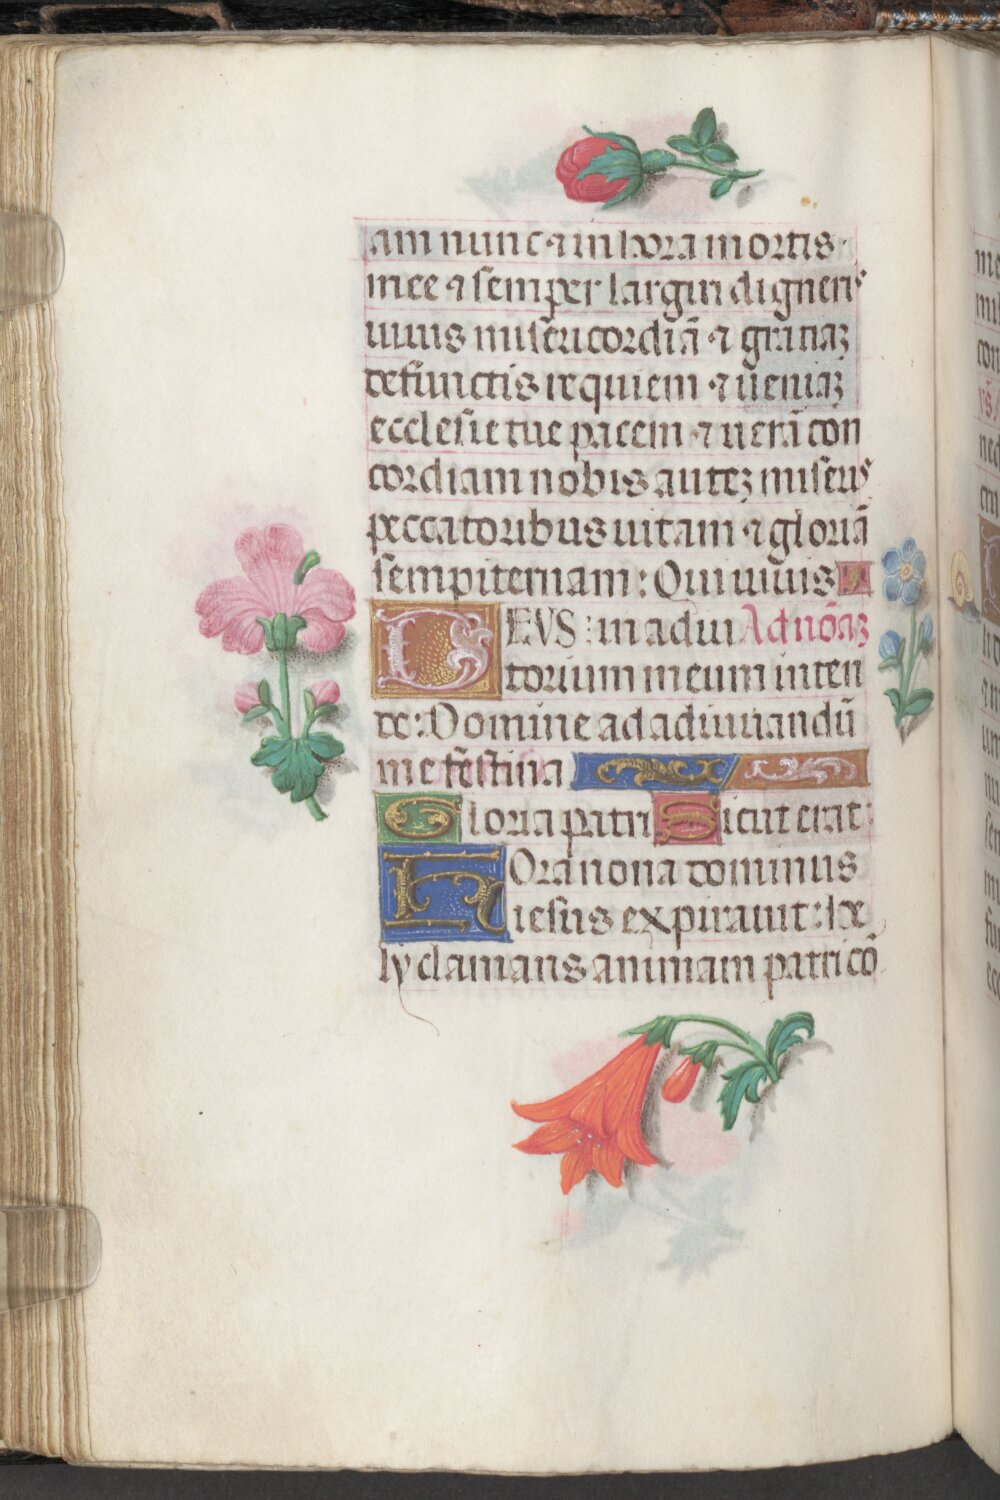 am nunc ⁊ in hora mortis
mee ⁊ semper largiri digneris
uiuis misericordiā ⁊ gratiaꝫ
defunctis requiem ⁊ ueniaꝫ
ecclesie tue pacem ⁊ uerā con
cordiam nobis auteꝫ miseris
peccatoribus uitam ⁊ gloriā
sempiternam : Qui uiuis ⁊
DEVS : in adiu Ad nōaꝫ
torium meum inten
de : Domine ad adiuuandū
me festina
Gloria patri Sicut erat :
HOra nona dominus
iesus expirauit : he
ly clamans animam patri cō